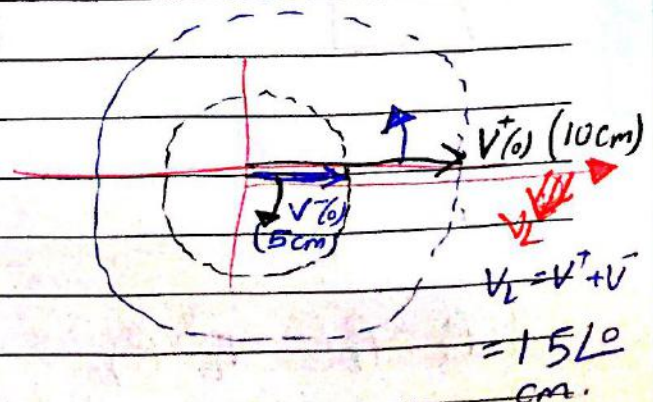 V⁺(0) (10cm)
V⁻(0)
(5cm)
V_L
V_L = V⁺ + V⁻
= 15∠0
cm.